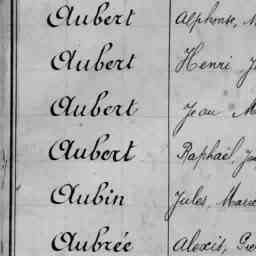 Aubert Alphonse, M
Aubert Henri J
Aubert Jean M
Aubert Raphaël, Ju
Aubin Jules, Marie
Aubrée Alexis,